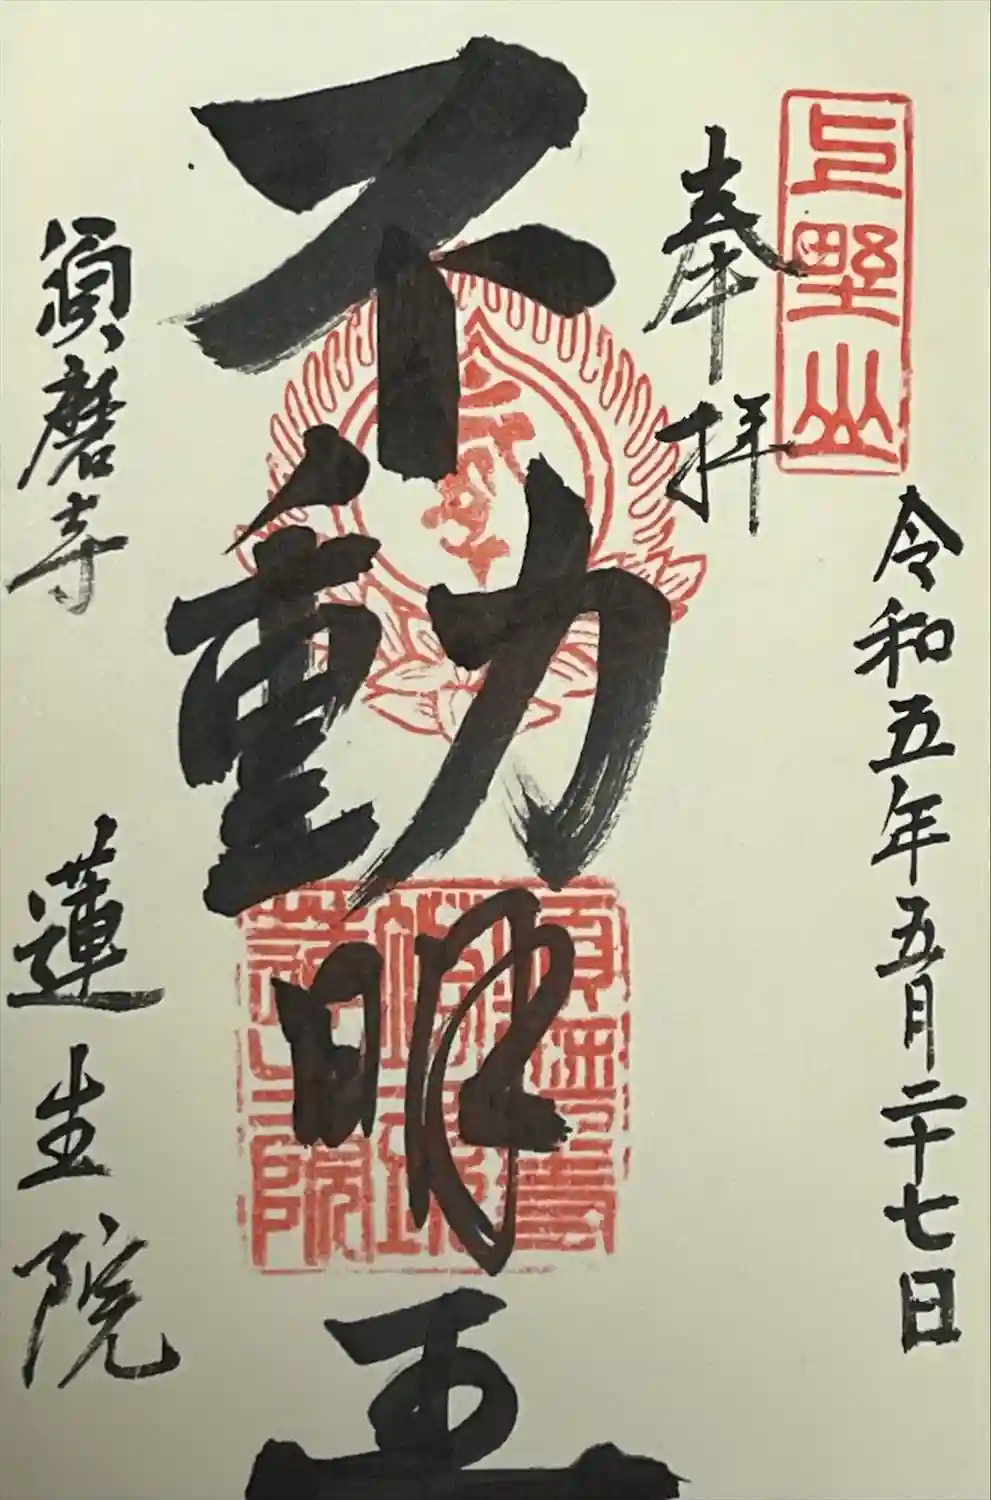 上野山
奉拝
令和五年五月二十七日
不動明王
須磨寺
蓮生院